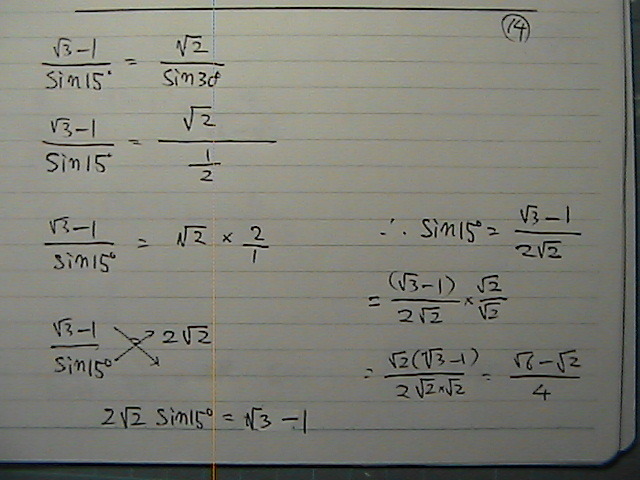 ⑭
(√3-1)/(Sin15°) = (√2)/(Sin30°)
(√3-1)/(Sin15°) = (√2)/(1/2)
(√3-1)/(Sin15°) = √2 × 2/1
(√3-1)/(Sin15°) = 2√2
2√2 Sin15° = √3-1
∴ Sin15° = (√3-1)/(2√2)
= (√3-1)/(2√2) × √2/√2
= (√2(√3-1))/(2√2×√2) = (√6-√2)/4